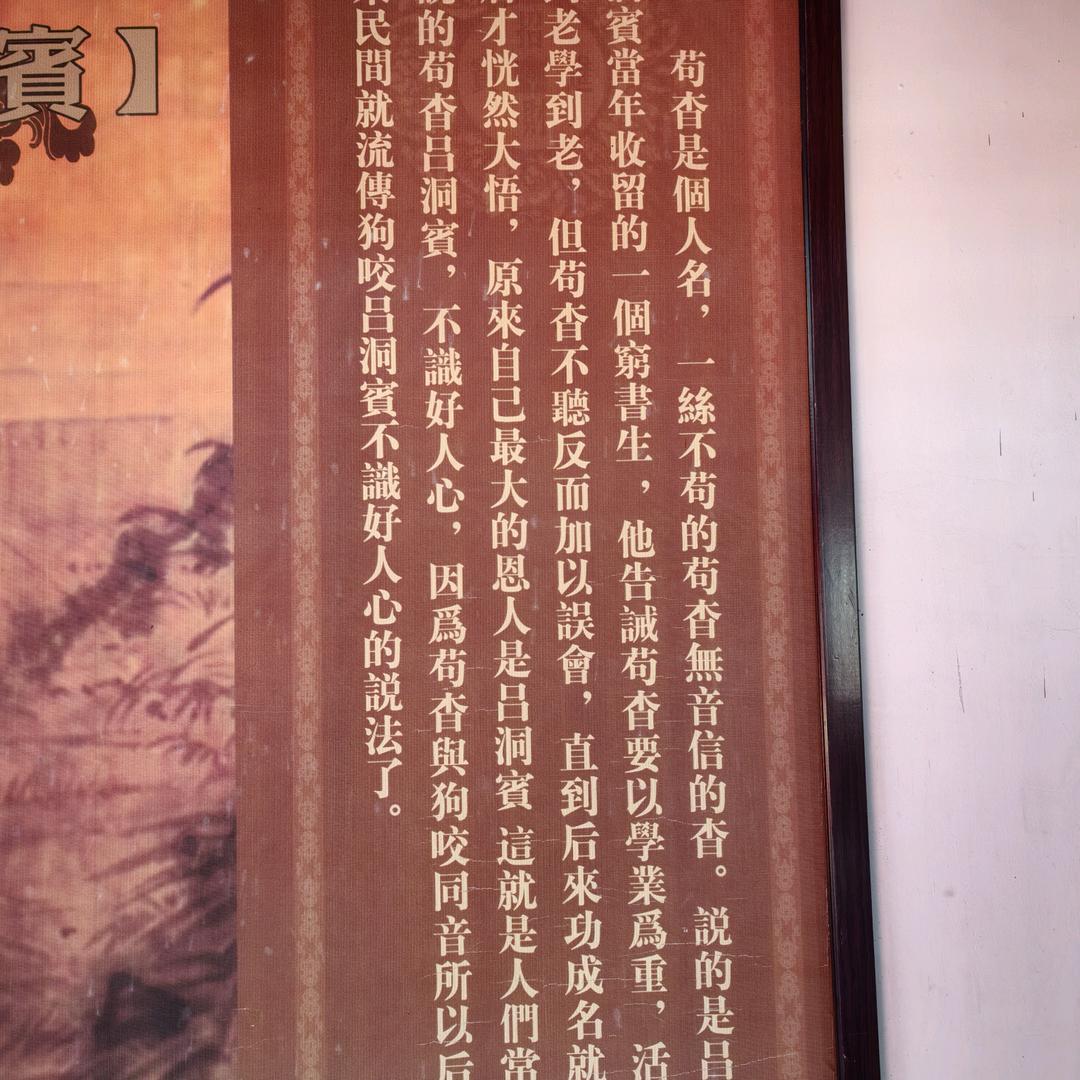 苟杳是個人名，一絲不苟的苟杳無音信的杳。説的是吕
洞賓當年收留的一個窮書生，他告誡苟杳要以學業爲重，活
到老學到老，但苟杳不聽反而加以誤會，直到后來功成名就
后才恍然大悟，原來自己最大的恩人是吕洞賓 這就是人們當
説的苟杳吕洞賓，不識好人心，因爲苟杳與狗咬同音所以后
來民間就流傳狗咬吕洞賓不識好人心的説法了。
賓】